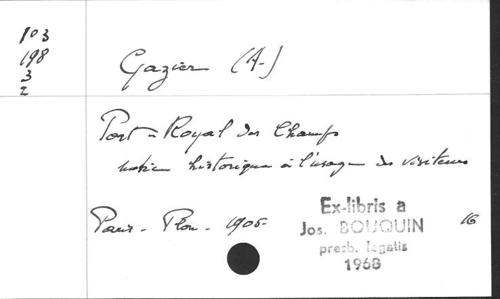 103
198
3
2
Gazier (A.)
Port-Royal des Champs
notice historique à l'usage des visiteurs
Paris - Plon - 1905-
Ex-libris a
Jos. BOUQUIN
presb. legalis
1968
16